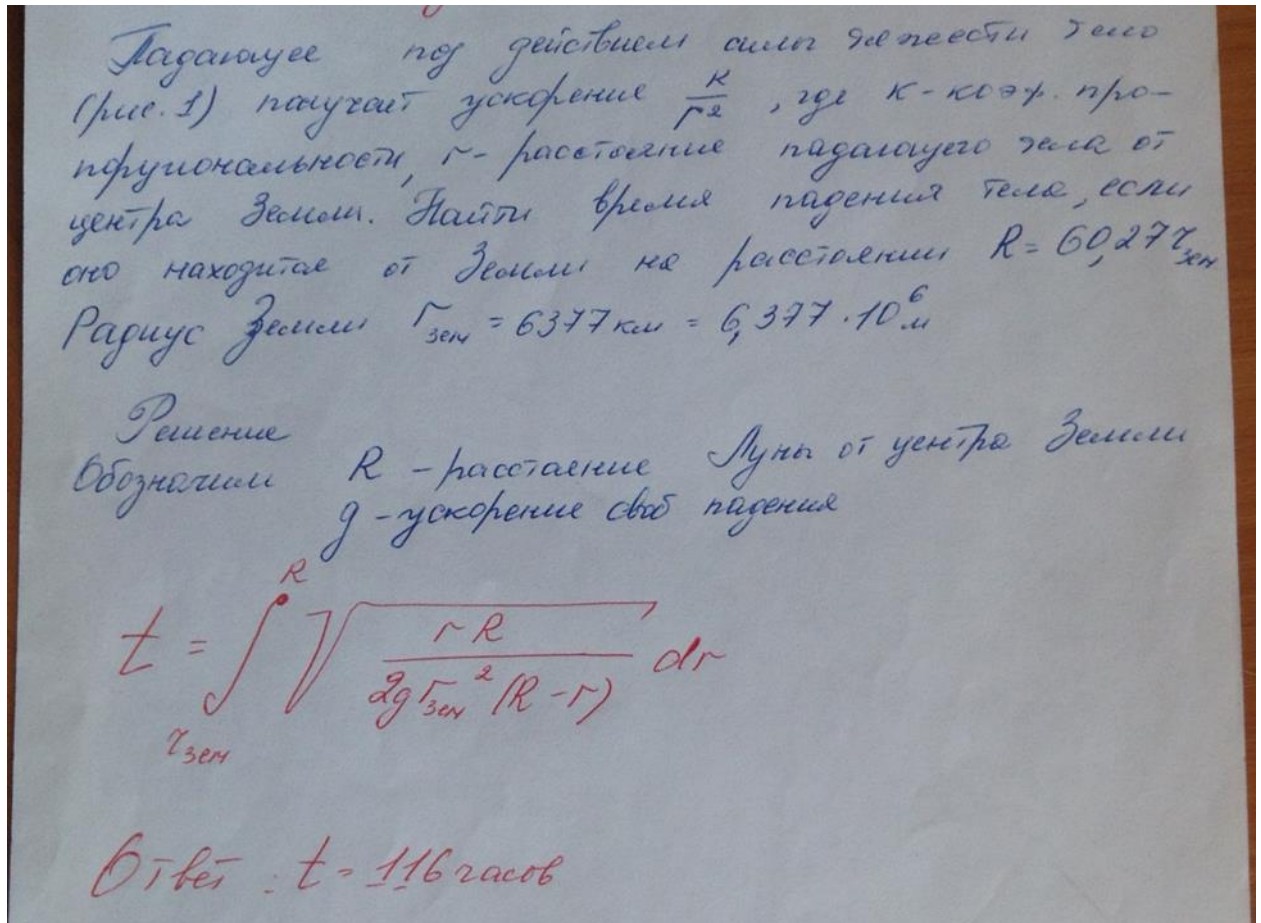 Падающее под действием силы тяжести тело
(рис. 1) получает ускорение K/r², где K - коэф. про-
порциональности, r - расстояние падающего тела от
центра Земли. Найти время падения тела, если
оно находится от Земли на расстоянии R = 60,27 r зем
Радиус Земли r зем = 6377 км = 6,377 · 10⁶ м
Решение
Обозначим R - расстаение Луны от центра Земли
g - ускорение своб падения
t = ∫_{r зем}^{R} √(rR / (2g r зем² (R - r))) dr
Ответ : t = 116 часов